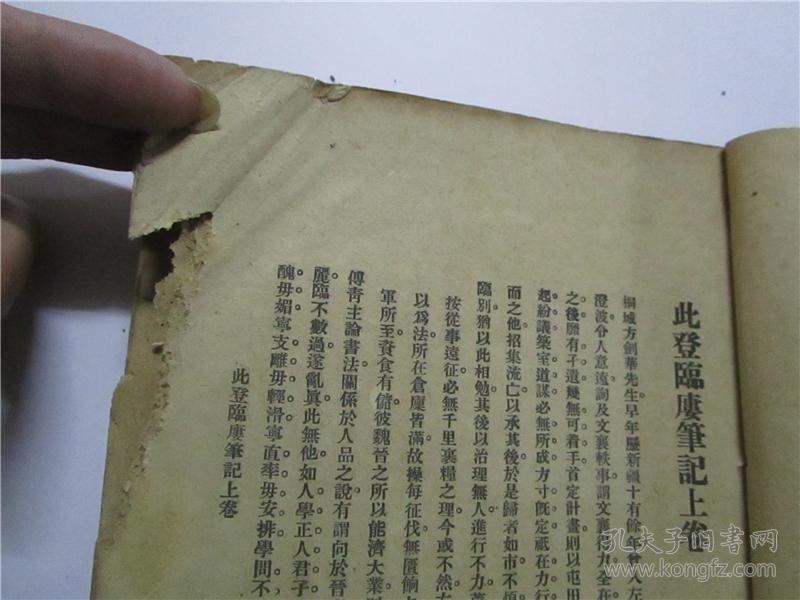 此登臨廔筆記上卷
桐城方劍華先生早年歷新疆十有餘年曾入左
澄波令人意遠詢及文襄軼事謂文襄得力全在
之後靡有孑遺幾無可着手首定計畫則以屯田
起紛議築室道謀必無所成方寸旣定祇在力行
而之他招集流亡以承其後於是歸者如市不煩
臨別猶以此相勉其後以治理無人進行不力
按從事遠征必無千里裹糧之理今或不然
以爲法所在倉廩皆滿故操每征伐無匱餉
軍所至資食有儲彼魏晉之所以能濟大業
傅靑主論書法關係於人品之說有謂向於晉
麗臨不數過遂亂眞此無他如人學正人君子
醜毋媚寧支離毋輕滑寧直率毋安排學問不
此登臨廔筆記上卷
孔夫子旧书网
www.kongfz.com